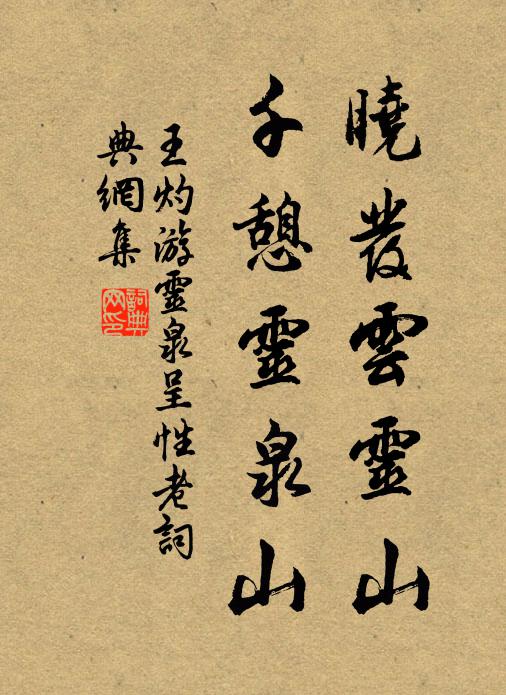 曉發雲靈山
千憩靈泉山
王灼游靈泉呈性老詞
典網集
詞典網印